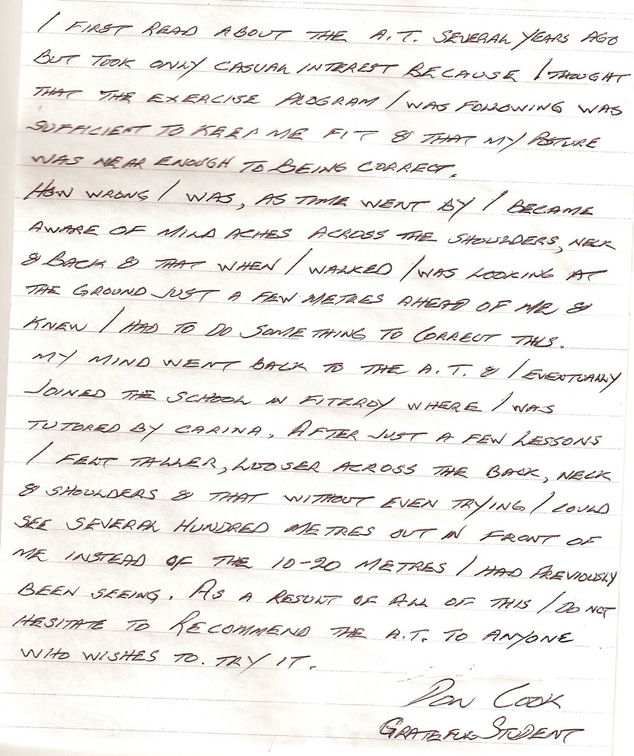 I FIRST READ ABOUT THE A.T. SEVERAL YEARS AGO
BUT TOOK ONLY CASUAL INTEREST BECAUSE I THOUGHT
THAT THE EXERCISE PROGRAM I WAS FOLLOWING WAS
SUFFICIENT TO KEEP ME FIT & THAT MY POSTURE
WAS NEAR ENOUGH TO BEING CORRECT.
HOW WRONG I WAS, AS TIME WENT BY I BECAME
AWARE OF MIND ACHES ACROSS THE SHOULDERS, NECK
& BACK & THAT WHEN I WALKED I WAS LOOKING AT
THE GROUND JUST A FEW METRES AHEAD OF ME &
KNEW I HAD TO DO SOMETHING TO CORRECT THIS.
MY MIND WENT BACK TO THE A.T. & I EVENTUALLY
JOINED THE SCHOOL IN FITZROY WHERE I WAS
TUTORED BY CARINA. AFTER JUST A FEW LESSONS
I FELT TALLER, LOOSER ACROSS THE BACK, NECK
& SHOULDERS & THAT WITHOUT EVEN TRYING I COULD
SEE SEVERAL HUNDRED METRES OUT IN FRONT OF
ME INSTEAD OF THE 10-20 METRES I HAD PREVIOUSLY
BEEN SEEING. AS A RESULT OF ALL OF THIS I DO NOT
HESITATE TO RECOMMEND THE A.T. TO ANYONE
WHO WISHES TO. TRY IT.
DON COOK
GRATEFUL STUDENT